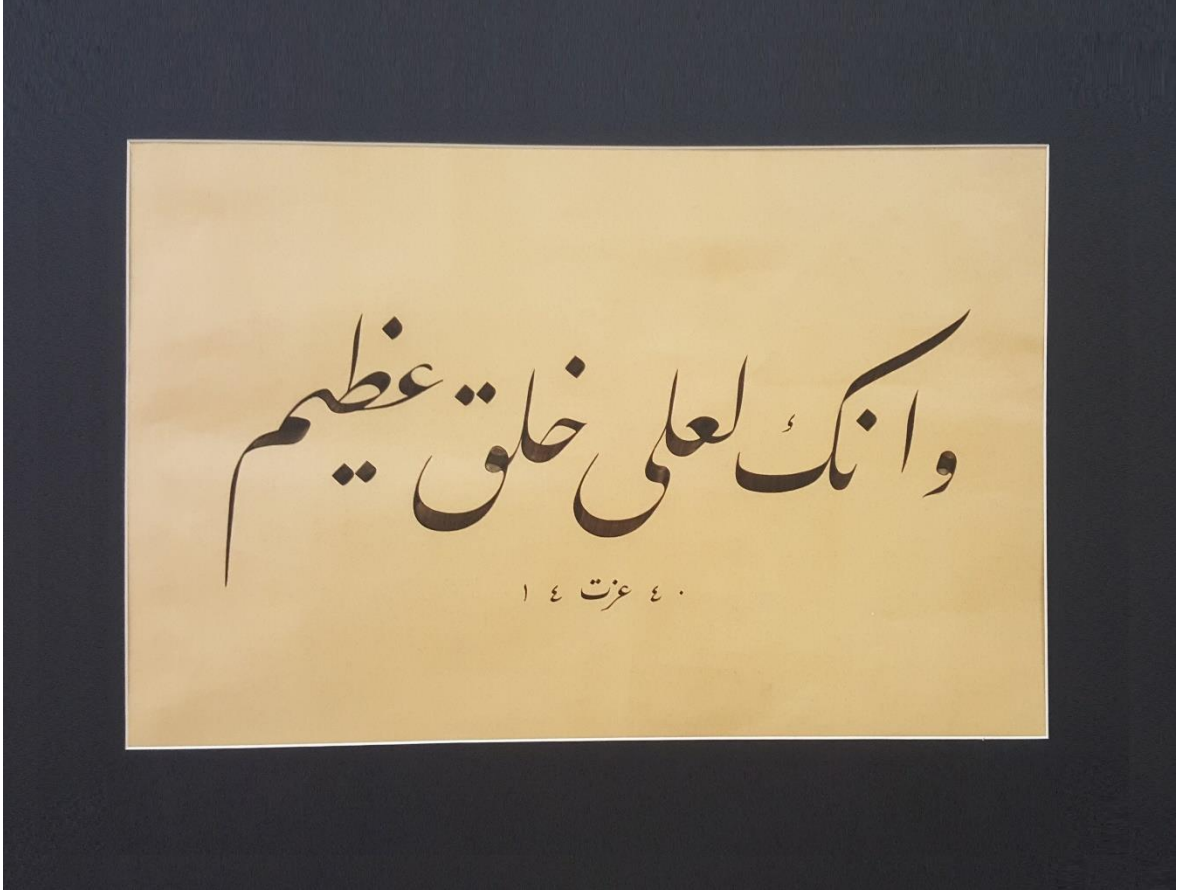 وانك لعلى خلق عظيم
١٤ عزت ٤٠